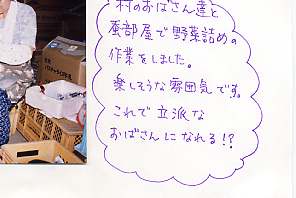 村のおばさん達と
蚕部屋で野菜詰めの
作業をしました。
楽しそうな雰囲気です。
これで立派な
おばさんになれる!?